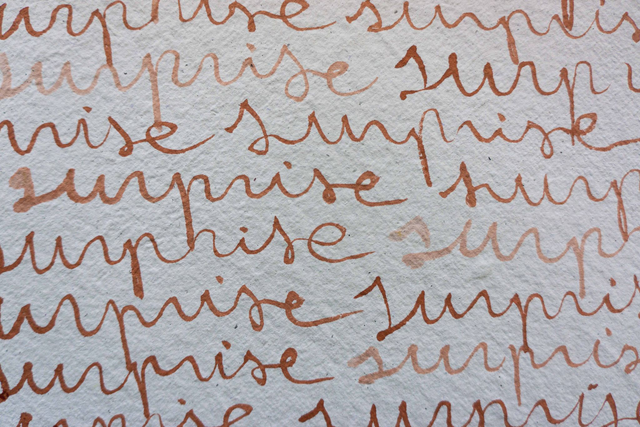 surprise surpris
surprise surp
rise surprise
surprise surp
surprise surp
surprise surpris
surprise surpris
surprise surpris